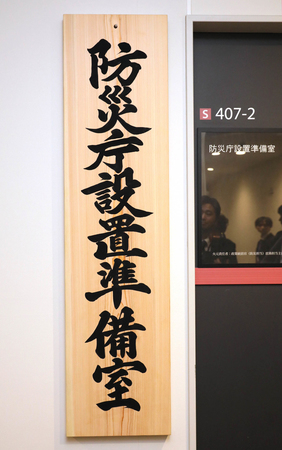 防災庁設置準備室
S 407-2
防災庁設置準備室